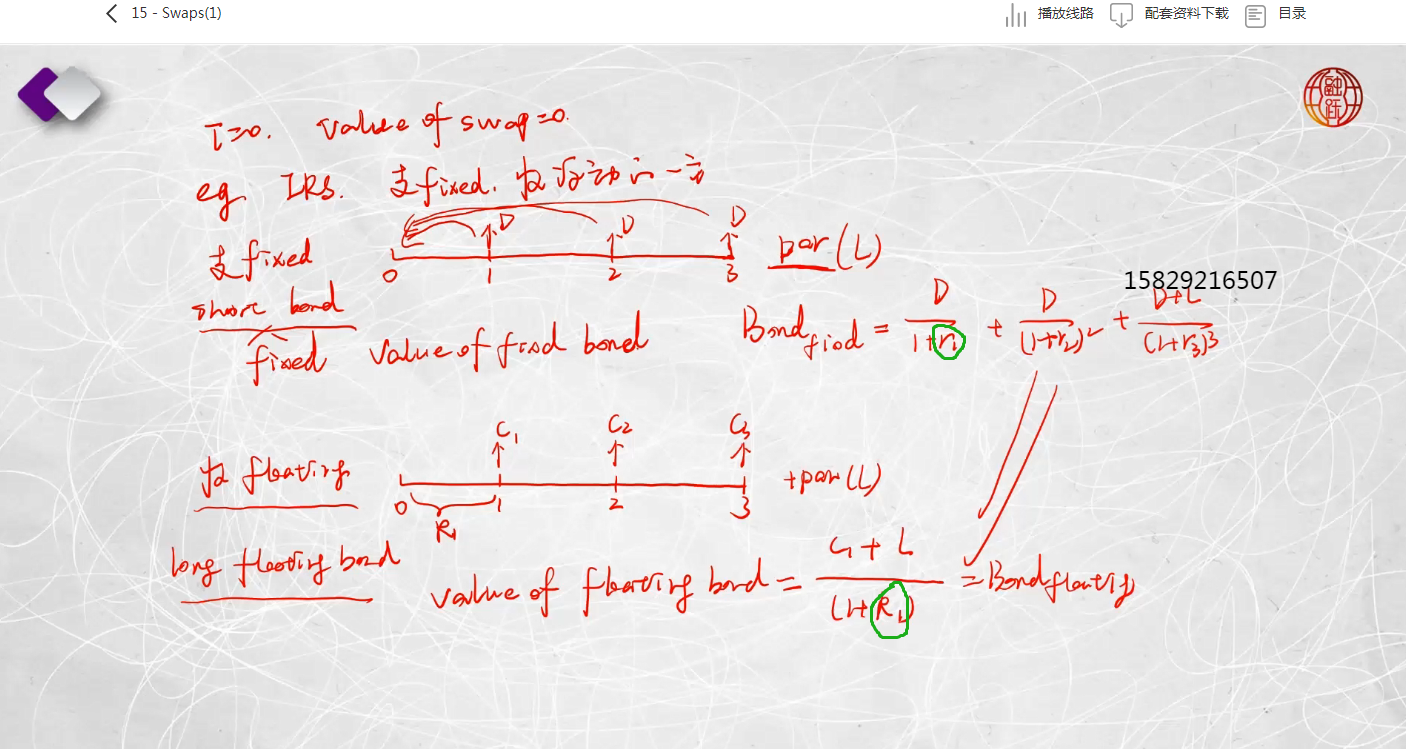 15 - Swaps(1)
播放线路
配套资料下载
目录
融跃
T=0. Value of swap=0.
eg. IRS. 支fixed. 收浮动的一方
支fixed
D D D
0 1 2 3
par (L)
15829216507
short bond
fixed
Value of fixd bond
Bond fixd = D/(1+r1) + D/(1+r2)² + (D+L)/(1+r3)³
C1 C2 C3
收 floating
0 1 2 3
+par(L)
R1
long floating bond
value of floating bond = (C1+L)/(1+R1) = Bond floating